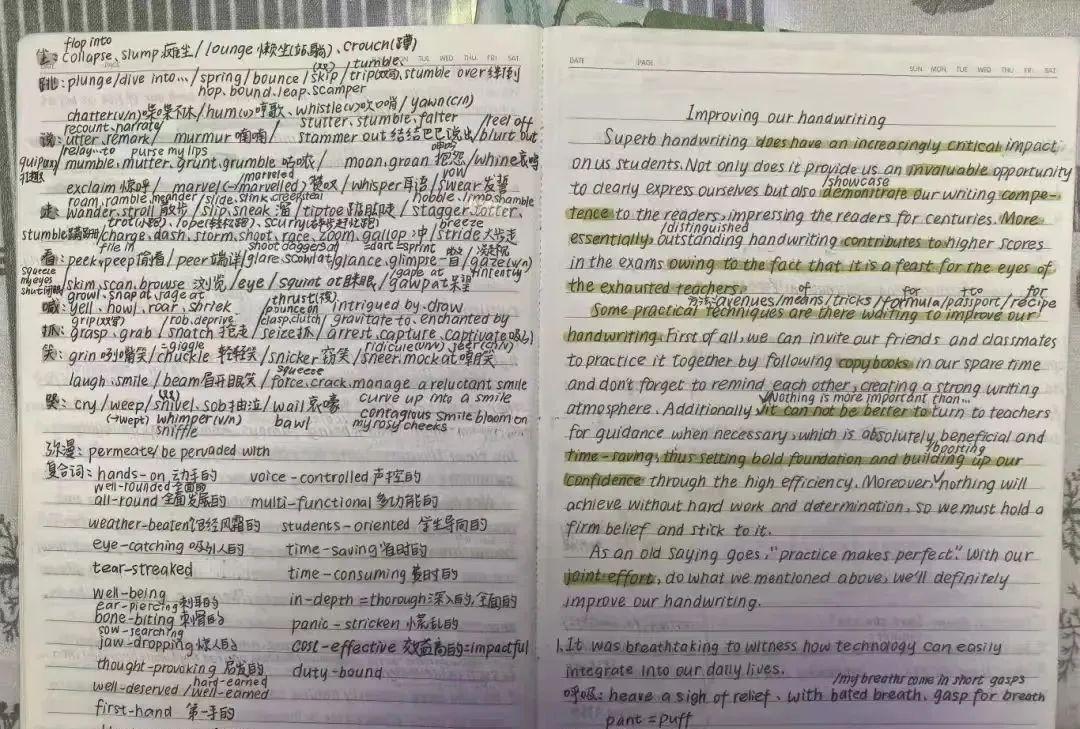 flop into
坐: collapse、slump 瘫坐/lounge 懒坐(站躺)、crouch(蹲)
tumble
跳: plunge/dive into…/spring/bounce/skip/trip(双写)、stumble over 绊倒
hop、bound、leap、scamper
chatter(v/n)喋喋不休/hum(v)哼歌、whistle(v)吹口哨/yawn(v/n)
recount、narrate stutter、stumble、falter /feel off
说: utter、remark/ murmur 喃喃/ stammer out 结结巴巴说出/blurt out
relay…to purse my lips
mumble、mutter、grunt、grumble 咕哝/ moan、groan 抱怨/whine哀鸣
marveled vow
exclaim 惊呼/ marvel(→marvelled)赞叹/whisper 耳语/swear 发誓
roam、ramble、meander /slide、slink、creep、steal hobble、limp、shamble
走: wander、stroll 散步/slip、sneak 溜/tiptoe 踮脚走/stagger、totter、
breeze
stumble /charge、dash、storm、shoot、race、zoom、gallop 冲/stride 大步走
file in shoot daggers at =dart=sprint
看: peek、peep 偷看/peer 端详/glare、scowl at/glance、glimpse 一瞥/gaze(v/n)
squeeze my eyes shut gape at intently
skim、scan、browse 浏览/eye/squint at 眯眼/gawp at 呆望
growl、snap at、rage at thrust(v)
喊: yell、howl、roar、shriek pounce on intrigued by、draw
grip /rob、deprive clasp、clutch gravitate to、enchanted by
抓: grasp、grab/snatch 抢走/seize 抓/arrest、capture、captivate 吸引
=giggle ridicule(n/v)、jeer(v/n)
笑: grin 咧嘴笑/chuckle 轻轻笑/snicker 窃笑/sneer、mock at 嘲笑
squeeze
laugh、smile/beam 眉开眼笑/force、crack、manage a reluctant smile
哭: cry/weep/snivel、sob 抽泣/wail 哀嚎 curve up into a smile
(→wept) whimper(v/n) bawl contagious smile bloom on
sniffle my rosy cheeks
弥漫: permeate/be pervaded with
复合词: hands-on 动手的 voice-controlled 声控的
well-rounded 全面的
all-round 全面发展的 multi-functional 多功能的
weather-beaten 饱经风霜的 students-oriented 学生导向的
eye-catching 吸引人的 time-saving 省时的
tear-streaked time-consuming 费时的
well-being in-depth=thorough 深入的,全面的
ear-piercing 刺耳的
bone-biting 刺骨的 panic-stricken 惊慌的
sow-searching
jaw-dropping 惊人的 cost-effective 效益高的=impactful
thought-provoking 启发的 duty-bound
hard-earned
well-deserved /well-earned
first-hand 第一手的
DATE PAGE SUN MON TUE WED THU FRI SAT
Improving our handwriting
Superb handwriting does have an increasingly critical impact
on us students. Not only does it provide us an invaluable opportunity
/showcase
to clearly express ourselves but also demonstrate our writing compe-
tence to the readers, impressing the readers for centuries. More
/distinguished
essentially, outstanding handwriting contributes to higher scores
in the exams owing to the fact that it is a feast for the eyes of
the exhausted teachers.
方法: avenues/means/tricks/formula/passport/recipe
of for to for
Some practical techniques are there waiting to improve our
handwriting. First of all, we can invite our friends and classmates
to practice it together by following copybooks in our spare time
and don't forget to remind each other, creating a strong writing
Nothing is more important than…
atmosphere. Additionally, it can not be berter to turn to teachers
for guidance when necessary, which is absolutely beneficial and
/boosting
time-saving, thus setting bold foundation and building up our
confidence through the high efficiency. Moreover, nothing will
achieve without hard work and determination, so we must hold a
firm belief and stick to it.
As an old saying goes, "practice makes perfect." With our
joint effort, do what we mentioned above, we'll definitely
improve our handwriting.
1. It was breathtaking to witness how technology can easily
integrate into our daily lives.
/my breaths come in short gasps
呼吸: heave a sigh of relief、with bated breath、gasp for breath
pant=puff